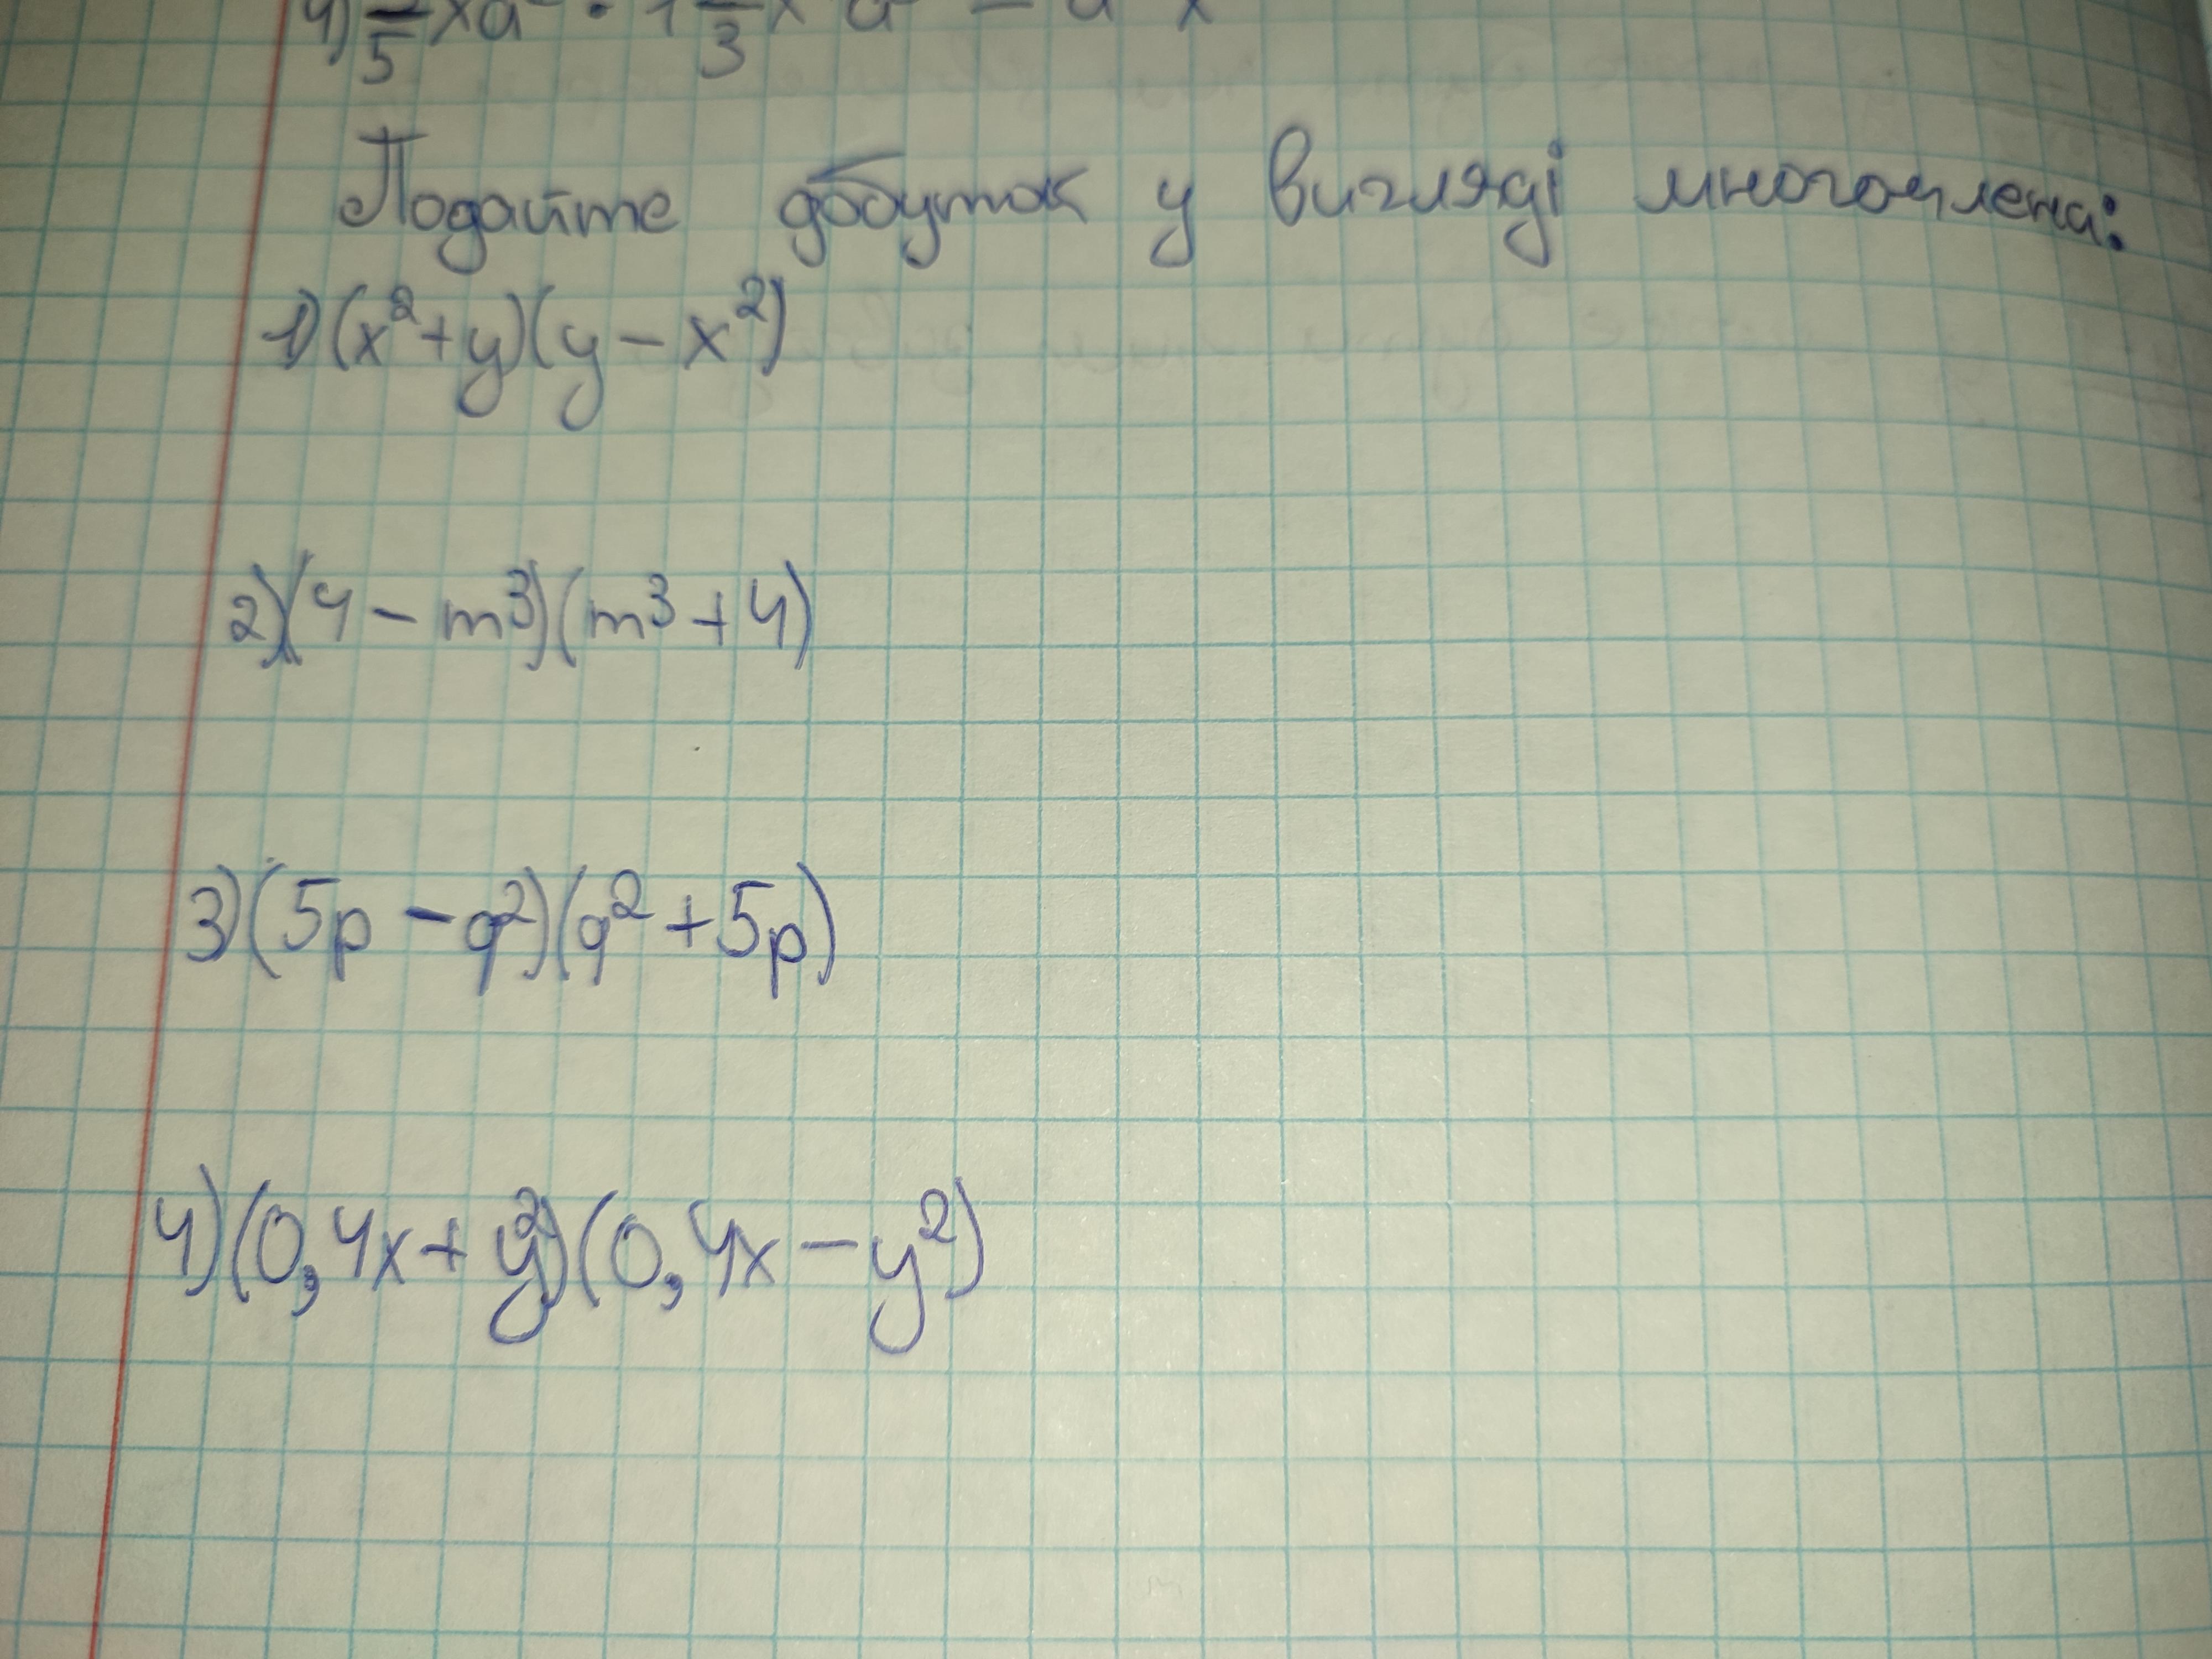 Подайте дбуток у вигляді многочлена:
1) (x² + y)(y − x²)
2) (4 − m³)(m³ + 4)
3) (5p − q²)(q² + 5p)
4) (0,4x + y²)(0,4x − y²)